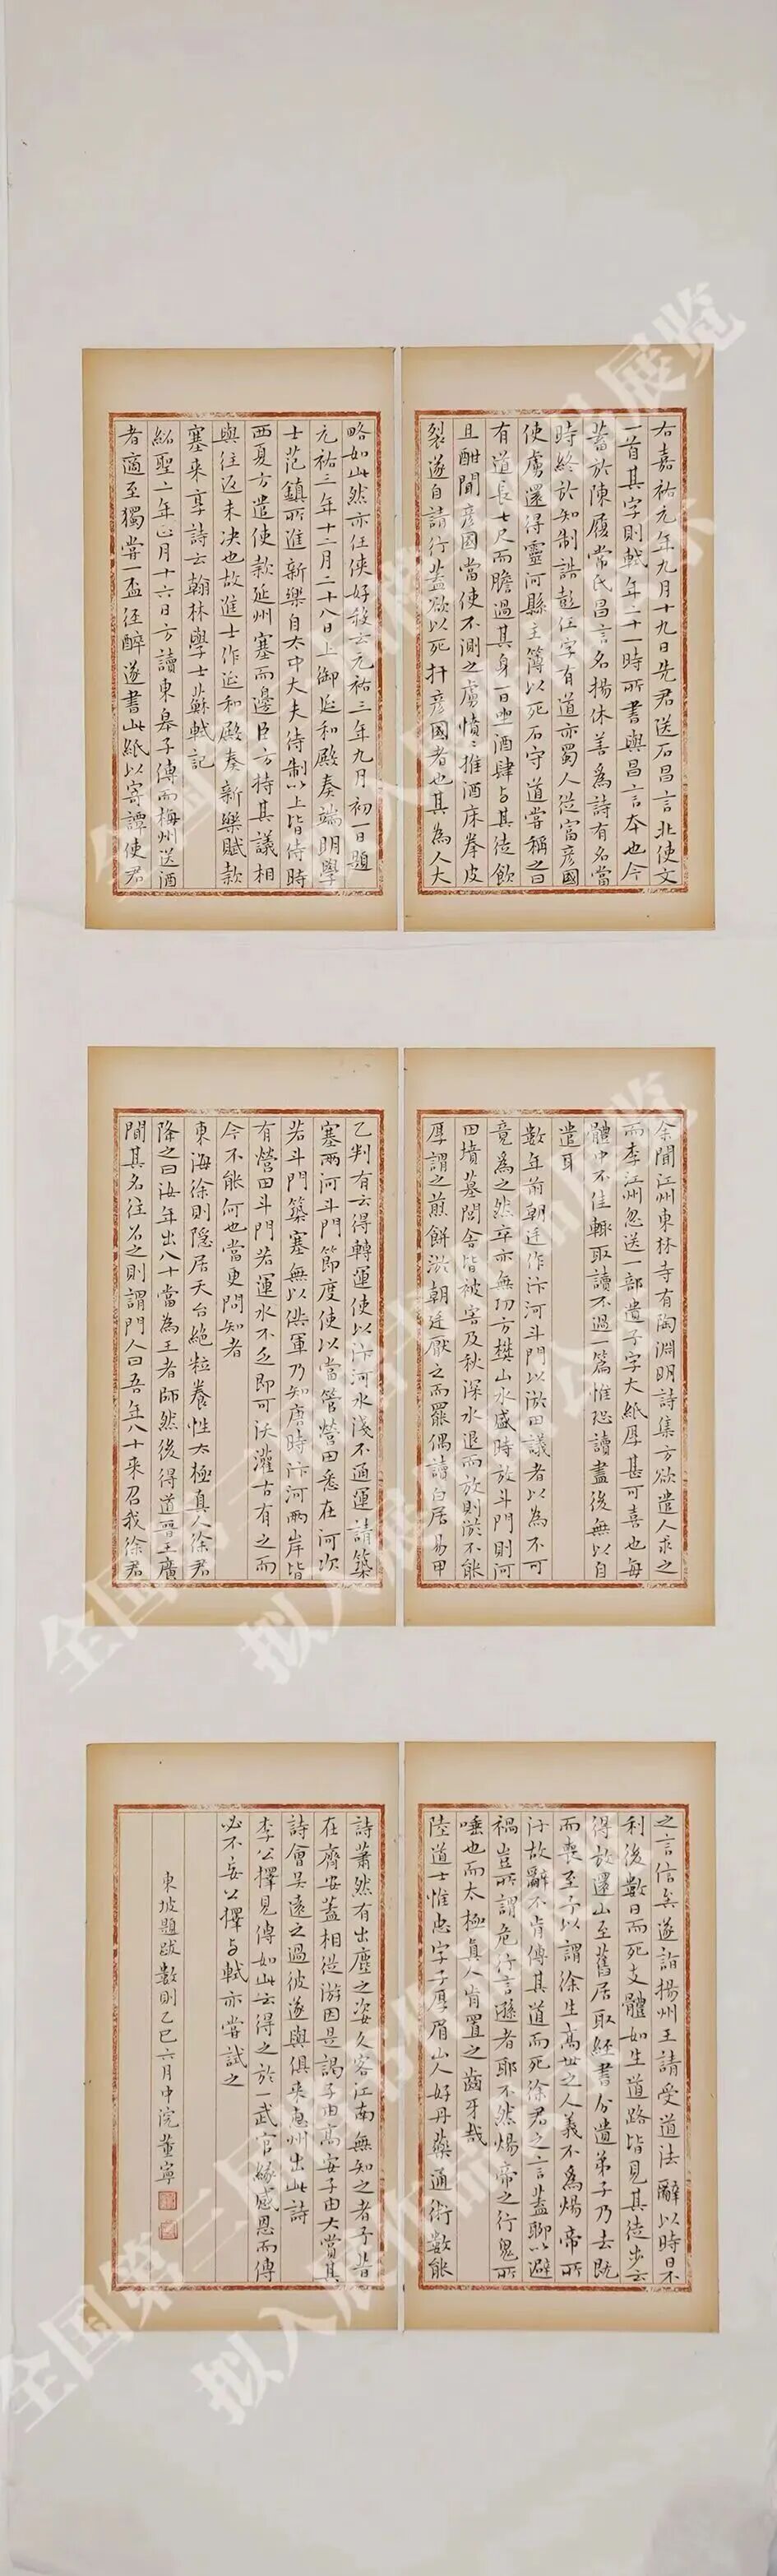 右嘉祐元年九月十九日先君送石昌言北使文
一首其字則軾年二十一時所書與昌言本也今
蓄於陳履常氏昌言名揚休善為詩有名當
時終於知制誥彭任字有道亦蜀人從富彦國
使虜還得靈河縣主簿以死石守道嘗稱之曰
有道長七尺而膽過其身一日坐酒肆与其徒飲
且酣聞彦國當使不測之虜憤〻推酒床拳皮
裂遂自請行蓋欲以死扞彦國者也其為人大
略如此然亦任俠好殺云元祐三年九月初一日題
元祐三年十二月二十八日上御延和殿奏端明學
士范鎮所進新樂自太中大夫待制以上皆侍時
西夏方遣使款延州塞而邊臣方持其議相
與往返未决也故進士作延和殿奏新樂賦款
塞来享詩云翰林學士蘇軾記
紹聖二年正月十六日方讀東皋子傳而梅州送酒
者適至獨嘗一盃徑醉遂書此紙以寄譚使君
余聞江州東林寺有陶淵明詩集方欲遣人求之
而李江州忽送一部遺予字大紙厚甚可喜也每
體中不佳輙取讀不過一篇惟恐讀盡後無以自
遣耳
數年前朝廷作汴河斗門以淤田議者以為不可
竟為之然卒亦無功方樊山水盛時放斗門則河
田墳墓閭舍皆被害及秋深水退而放則淤不能
厚謂之煎餅淤朝廷厭之而罷偶讀白居易甲
乙判有云得轉運使以汴河水淺不通運請築
塞兩河斗門節度使以當管營田悉在河次
若斗門築塞無以供軍乃知唐時汴河兩岸皆
有營田斗門若運水不乏即可沃灌古有之而
今不能何也當更問知者
東海徐則隱居天台絶粒養性太極真人徐君
降之曰汝年出八十當為王者師然後得道晉王廣
聞其名往召之則謂門人曰吾年八十来召我徐君
之言信矣遂詣揚州王請受道法辭以時日不
利後數日而死支體如生道路皆見其徒步云
得放還山至舊居取經書分遺弟子乃去既
而喪至予以謂徐生高世之人義不為煬帝所
汙故辭不肯傳其道而死徐君之言蓋聊以避
禍豈所謂危行言遜者耶不然煬帝之行鬼所
唾也而太極真人肯置之齒牙哉
陸道士惟忠字子厚眉山人好丹藥通術數能
詩蕭然有出塵之姿久客江南無知之者予昔
在齊安蓋相從游因是謁子由高安子由大賞其
詩會吴遠之過彼遂與俱来惠州出此詩
李公擇見傳如此云得之於一武官緣感恩而傳
必不妄公擇与軾亦嘗試之
東坡題跋數則乙巳六月中浣董寧
全国第三届
拟入展作品展览